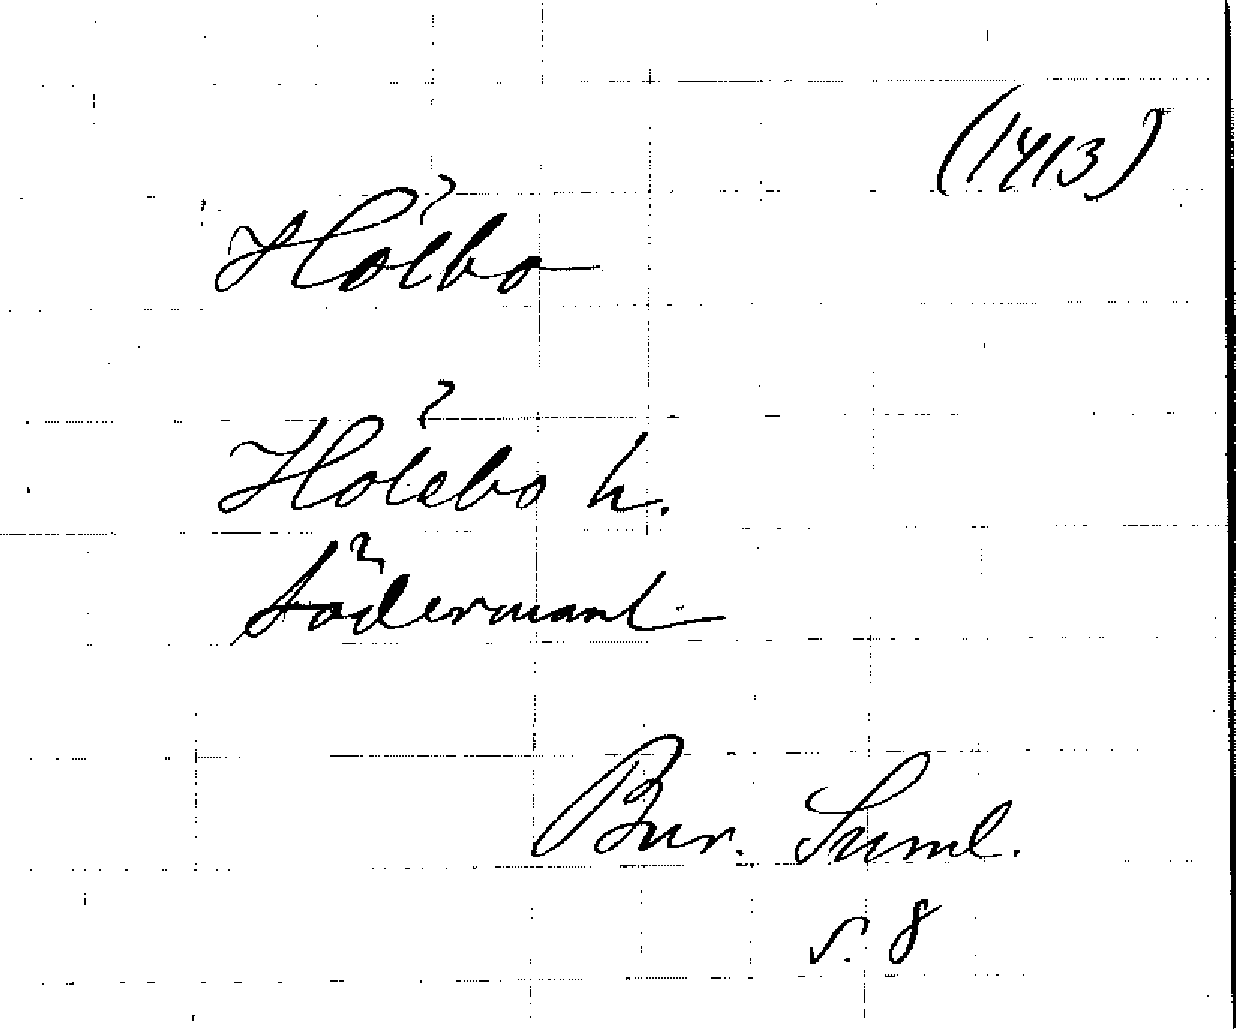 (1413)
Hölbo
Hölebo h.
Södermanl.
Bur. Suml.
s. 8